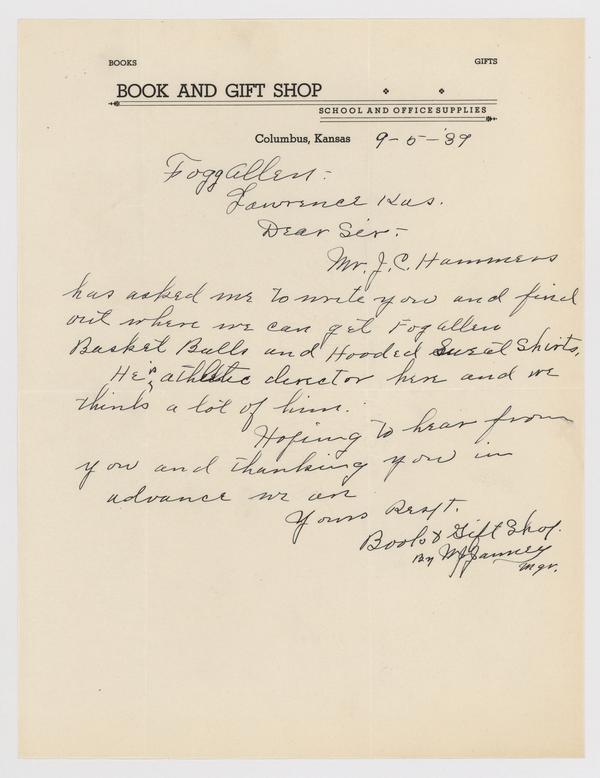 BOOKS
GIFTS
BOOK AND GIFT SHOP
SCHOOL AND OFFICE SUPPLIES
Columbus, Kansas 9-5-'39
Fogg Allen:-
Lawrence Kas.
Dear Sir:-
Mr. J. C. Hammers
has asked me to write you and find
out where we can get Fog Allen
Basket Balls and Hooded Sweat Shirts,
He is athletic director here and we
think a lot of him.
Hoping to hear from
you and thanking you in
advance we are
Yours Respt.
Book & Gift Shop.
By
Mgr.